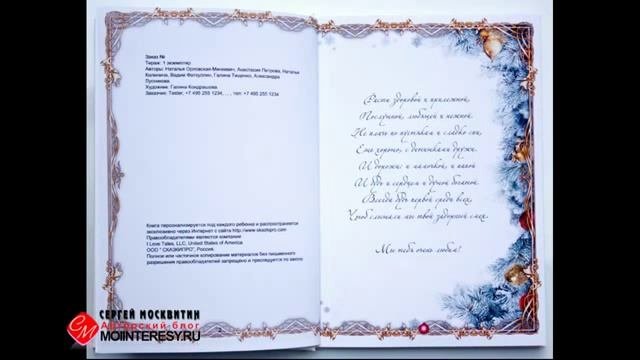 Заказ №
Тираж: 1 экземпляр
Авторы: Наталья Орловская-Минкевич, Анастасия Петрова, Наталья
Калинина, Вадим Фатхуллин, Галина Тищенко, Александра
Пусникова
Художник: Галина Кондрашова
Заказчик: Tester, +7 495 255 1234, , , , тел: +7 495 255 1234
Книга персонализируется под каждого ребенка и распространяется
эксклюзивно через Интернет с сайта http://www.skazkipro.com
Правообладателями являются компании
I Love Tales, LLC, United States of America
ООО " СКАЗКИПРО", Россия.
Полное или частичное копирование материалов без письменного
разрешения правообладателей запрещено и преследуется по закону.
Расти здоровой и прилежной,
Послушной, любящей и нежной.
Не плачь по пустякам и сладко спи,
Ешь хорошо, с денишками дружи.
И дорожи и мамочкой, и папой
И будь и сердцем и душой богатой.
Всегда будь первой среди всех,
Чтоб слышали мы твой задорный смех.
Мы тебя очень любим!
СЕРГЕЙ МОСКВИТИН
Авторский блог
MOIINTERESY.RU